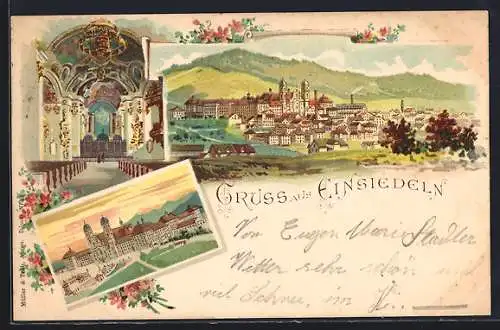 GRUSS aus EINSIEDELN
Von Eugen Stadler
Wetter sehr schön und
viel Schnee, im
Müller & Trüb, Aarau